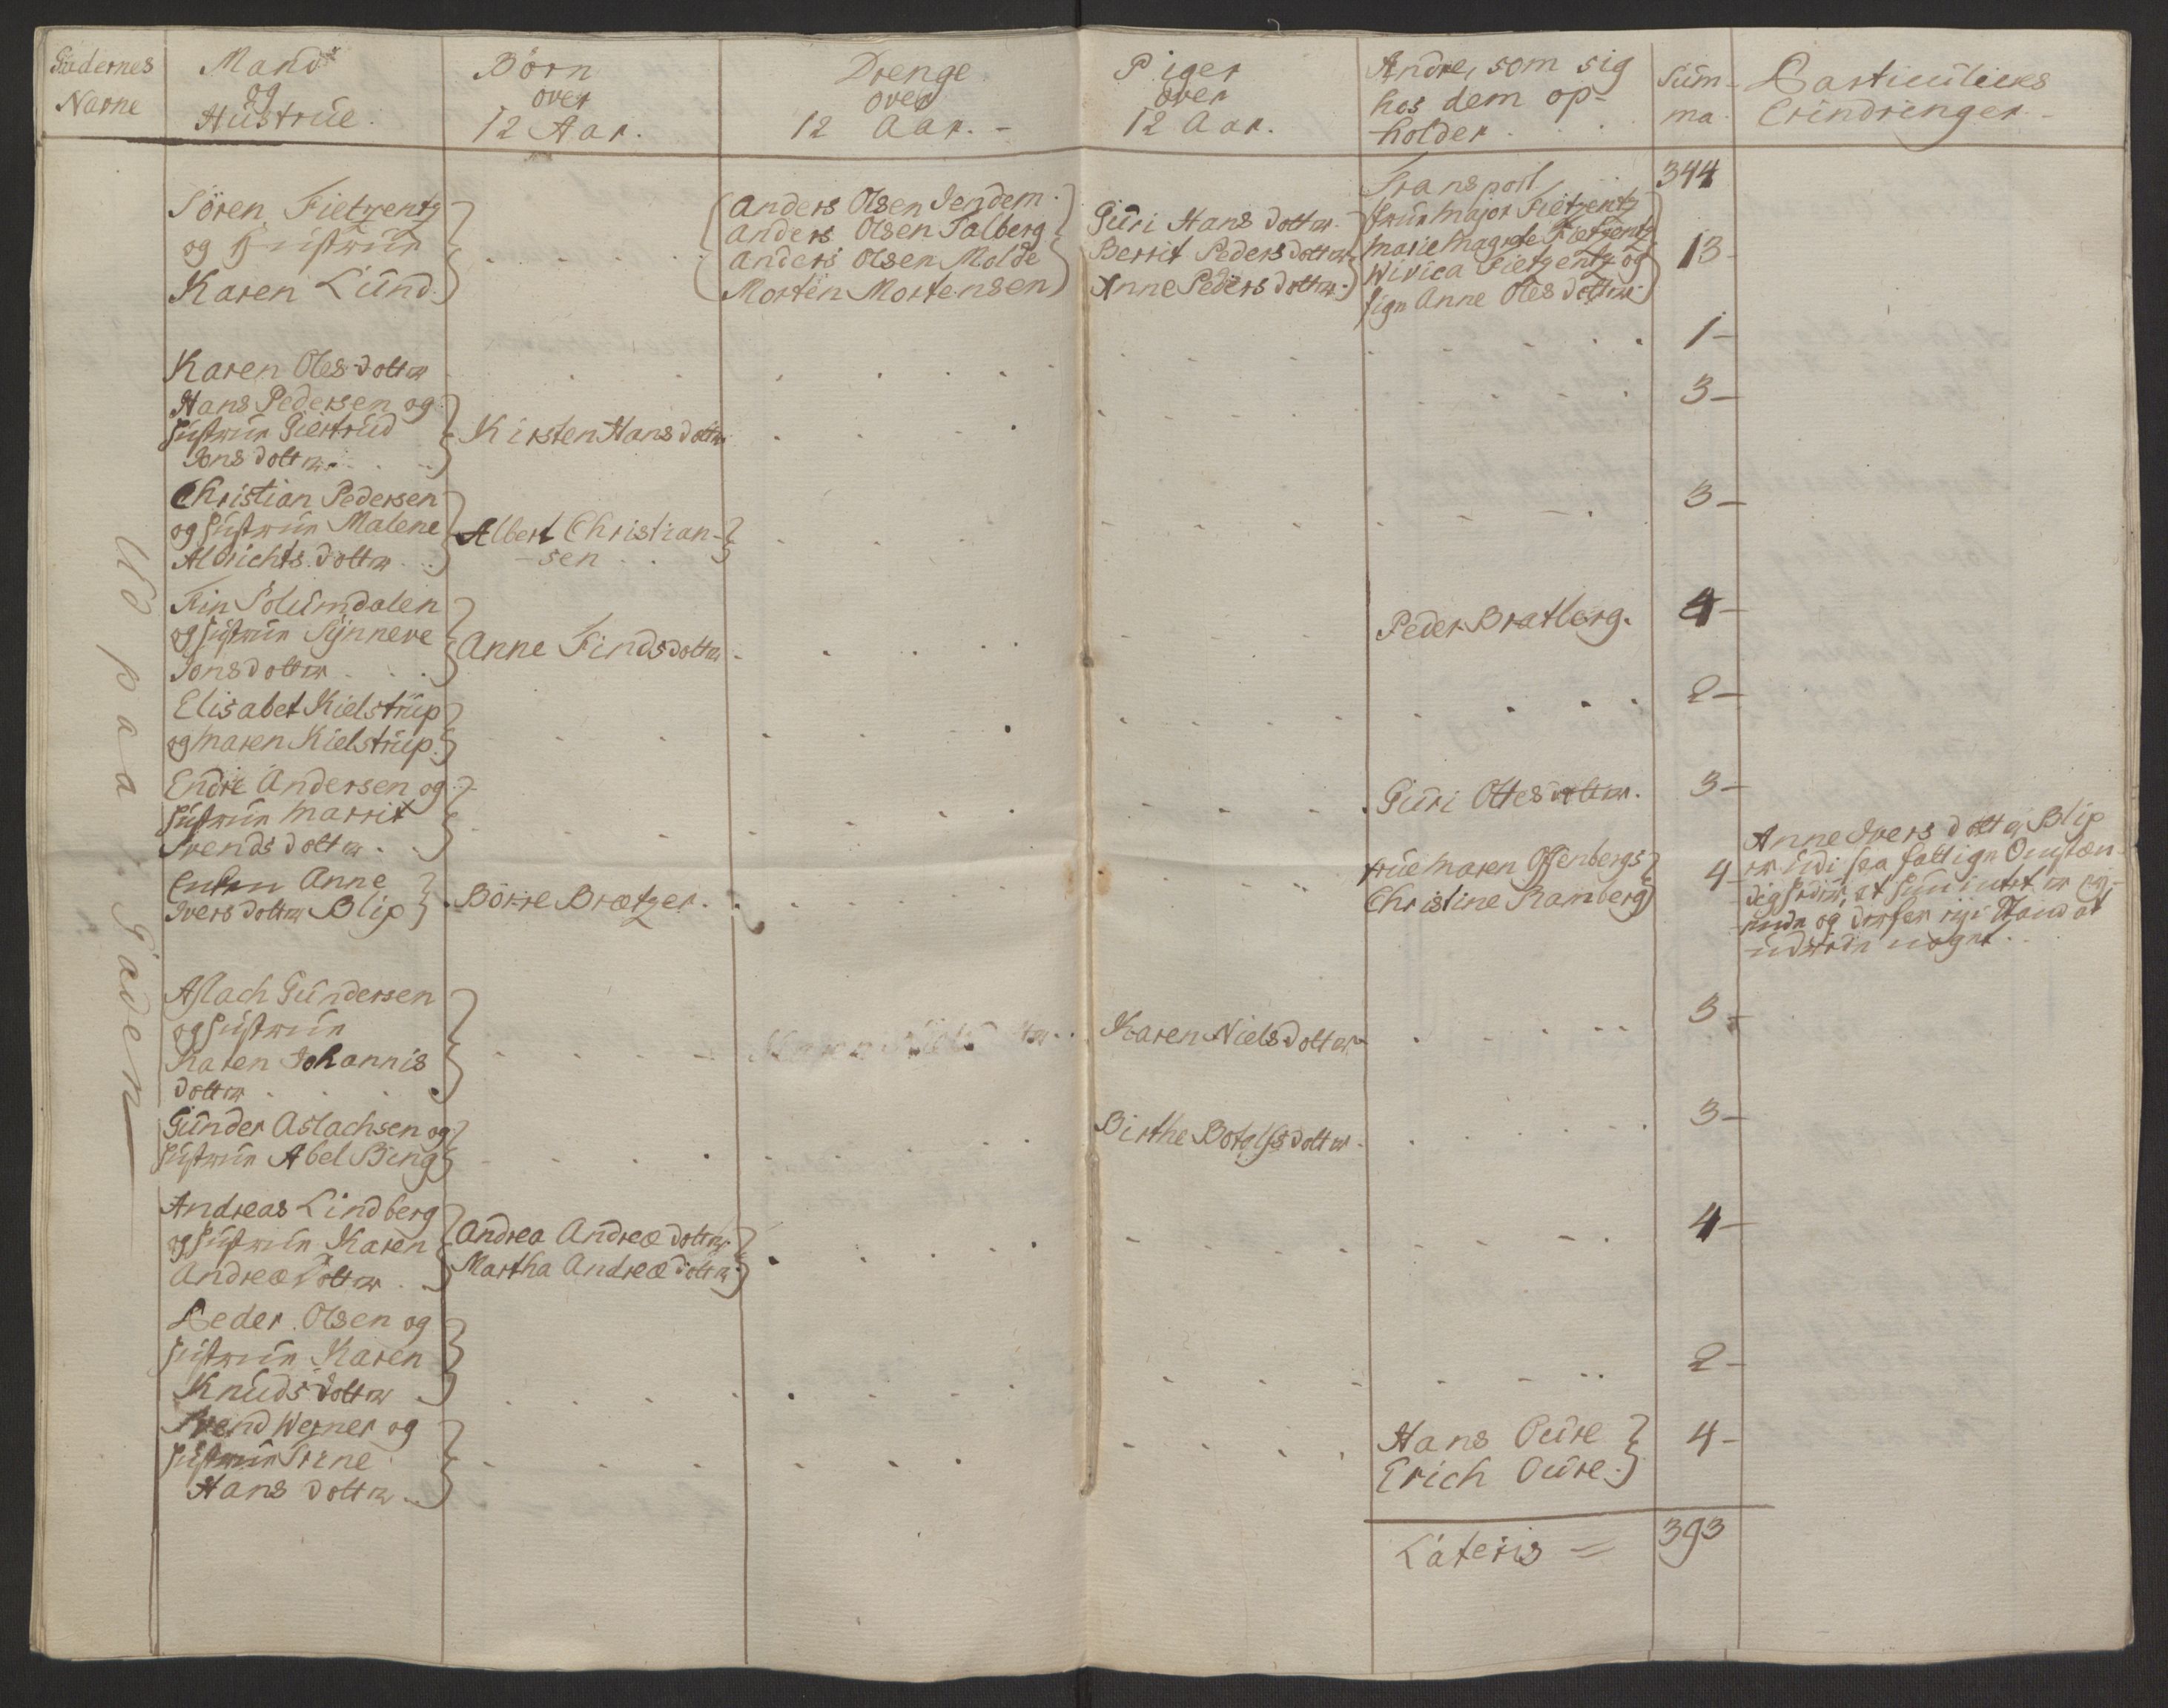 Gadernes Mand Börn Drenge Piger Andre, som sig Sum- Particulicus
Navne og over over over hos dem op- ma. Erindringer.
Hustrue. 12 Aar. 12 Aar. 12 Aar. holder
Transport 344
Sören Fietzentz
og Hustrue
Karen Lund.
Anders Olsen Jendem.
Anders Olsen Talberg
Anders Olsen Molde
Morten Mortensen
Guri Hans dotter
Berrit Peders dotter
Anne Peders dotter
frue Major Fietzentz
Marie Magrete Fietzentz
Wivica Fietzentz og
Anne Oles dotter
13
Karen Oles dotter 1-
Hans Pedersen og
Hustrue Giertrud
Jons dotter
Kirsten Hans dotter
3-
Christian Pedersen
og Hustrue Malene
Albrichts dotter
Albert Christian-
-sen
3-
Fin Solumdalen
og Hustrue Synneve
Jons dotter
Anne Finds dotter
Peder Bratberg.
4-
Elisabet Kielstrup
og Maren Kielstrup.
2-
Endre Andersen og
Hustrue Marrit
Svends dotter
Guri Ottes dotter.
3-
Enken Anne
Ivers dotter Blip
Börre Brætzer.
frue Maren Offenbergs
Christine Ramberg
4-
Anne Ivers dotter Blip
er udi saa fattige Omstæn-
digheder, at hun intet er ey-
ende og derfor ey i Stand at
udrede noget.
Aslach Gundersen
og Hustrue
Karen Johannis
dotter
Karen Niels dotter
3-
Gunder Aslachsen og
Hustrue Abel Bing
Birthe Botolfs dotter
3-
Andreas Lindberg
og Hustrue Karen
Andreæ dotter
Andrea Andreæ dotter
Martha Andreæ dotter
4-
Peder Olsen og
Hustrue Karen
Knuds dotter
2-
Svend Werner og
Hustrue Trine
Hans dotter
Hans Oure
Erich Oure.
4-
Lateris = 393
Ud paa Gaden